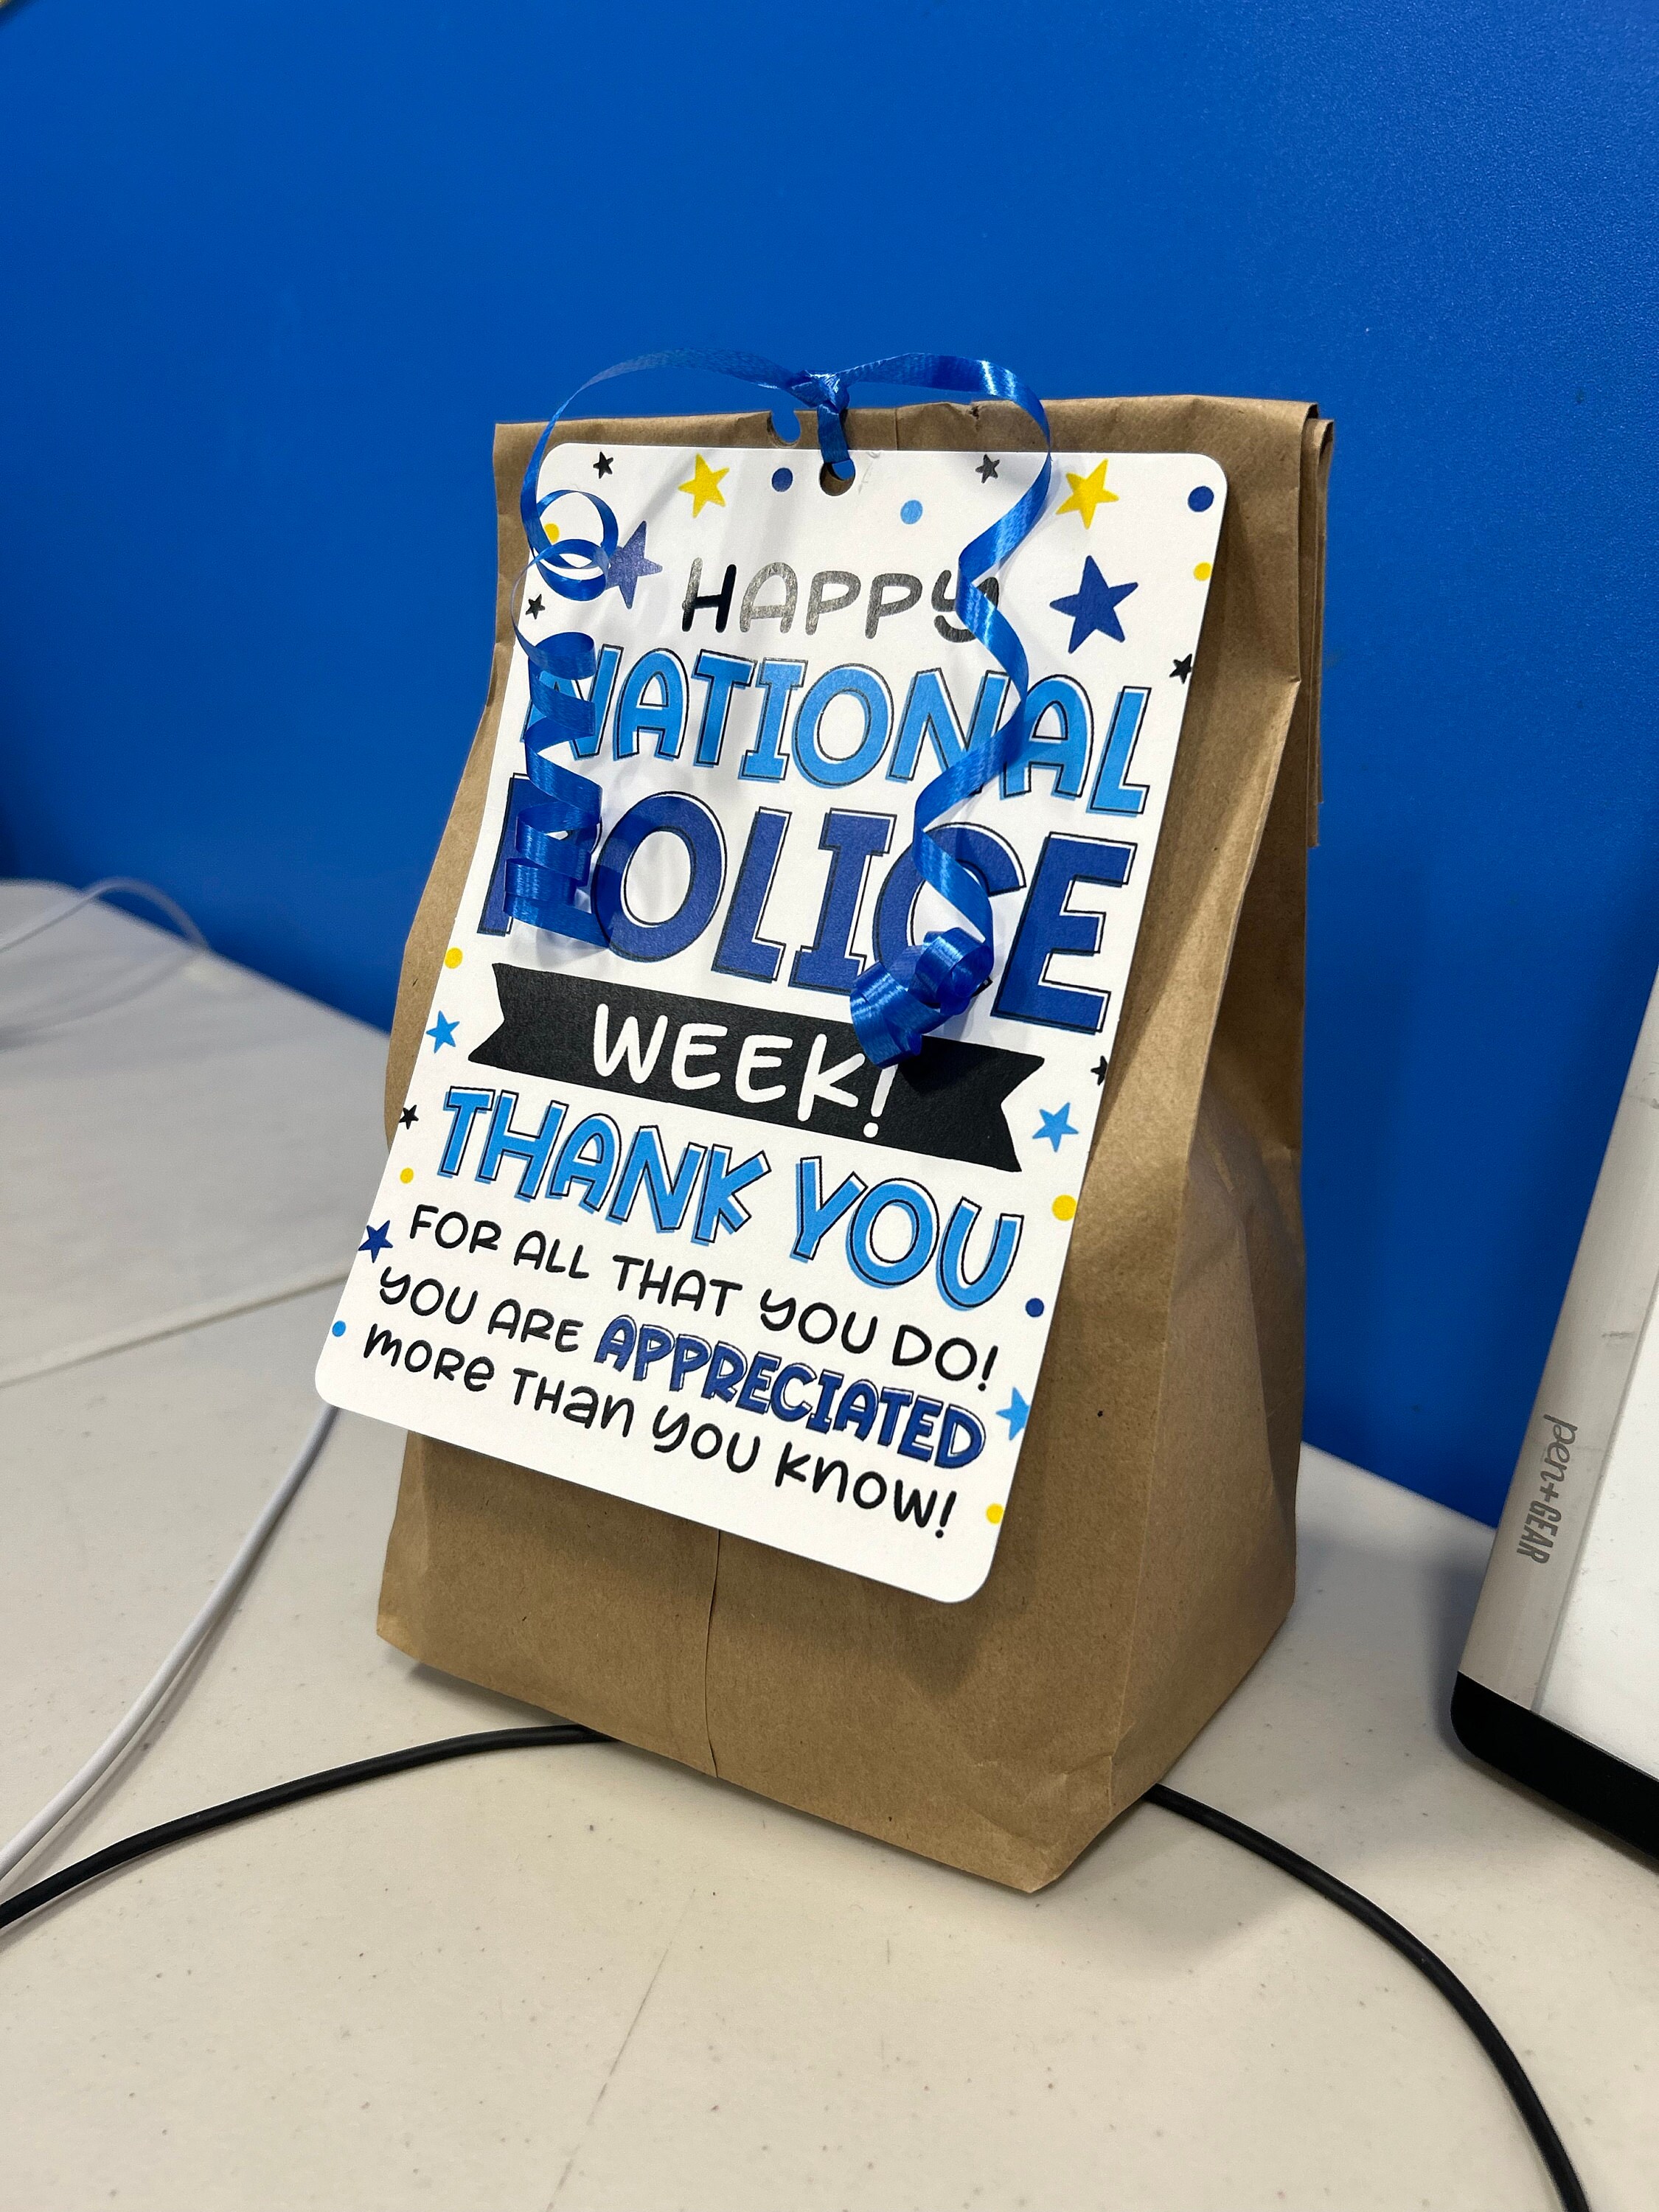 HAPPY
NATIONAL
POLICE
WEEK!
THANK YOU
FOR ALL THAT YOU DO!
YOU ARE APPRECIATED
more THan you know!
pen+GEAR